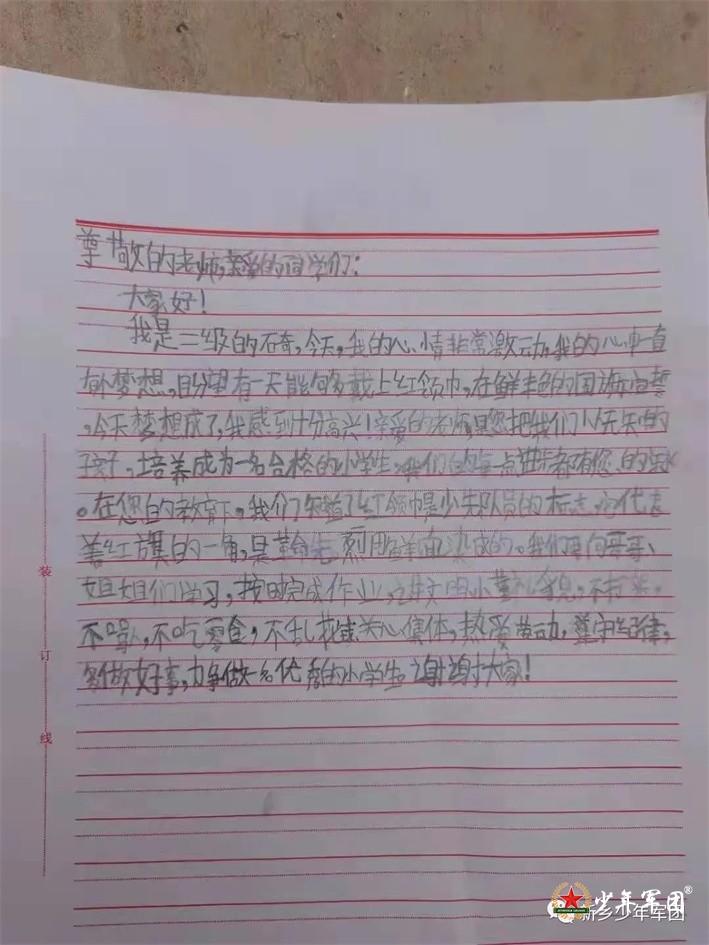 尊敬的老师,亲爱的同学们:
大家好!
我是三级的石奇,今天,我的心情非常激动,我的心中一直
有梦想,盼望有一天能够戴上红领巾,在鲜丰色的国海宣誓
,今天梦想成了,我感到十分高兴!亲爱的老师,是您把我们小天知的
孩子,培养成为一名合格的小学生,我们的每一点进步都有您的
。在您的教育下,我们知道了红领巾是少先队员的标志,它代表
着红旗的一角,是革命先烈用鲜血染成的。我们要向哥哥、
姐姐们学习,按时完成作业,文明小,不打架,
不吃零食,不乱花钱关心集体,热爱劳动,遵守纪律,
多做好事,力争做一名优秀的小学生。谢谢大家!
装
订
线
少年军团®
新乡少年军团